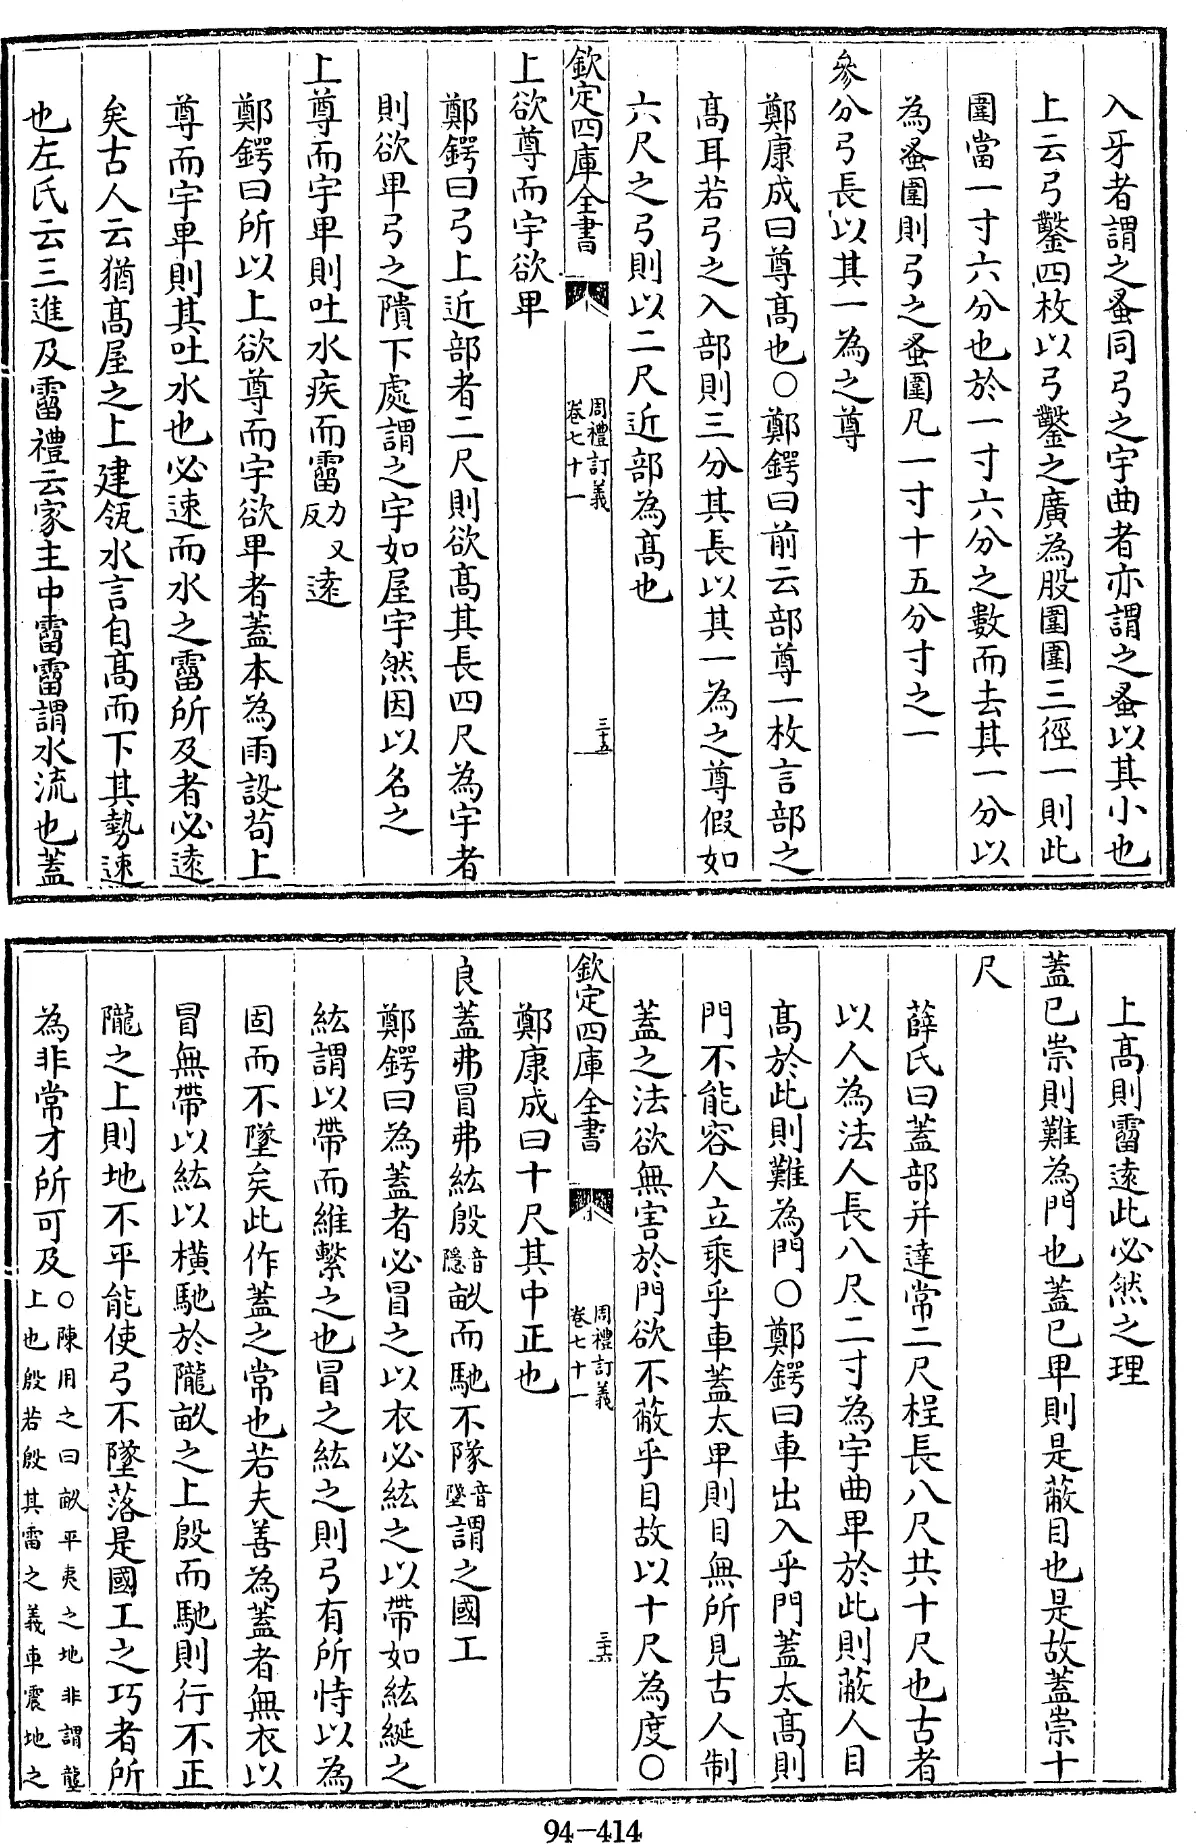 入牙者謂之蚤同弓之宇曲者亦謂之蚤以其小也
上云弓鑿四枚以弓鑿之廣為股圍圍三徑一則此
圍當一寸六分也於一寸六分之數而去其一分以
為蚤圍則弓之蚤圍凡一寸十五分寸之一
參分弓長以其一為之尊
鄭康成曰尊髙也○鄭鍔曰前云部尊一枚言部之
髙耳若弓之入部則三分其長以其一為之尊假如
六尺之弓則以二尺近部為髙也
欽定四庫全書
周禮訂義
卷七十一
三十五
上欲尊而宇欲卑
鄭鍔曰弓上近部者二尺則欲髙其長四尺為宇者
則欲卑弓之隤下處謂之宇如屋宇然因以名之
上尊而宇卑則吐水疾而霤力又反逺
鄭鍔曰所以上欲尊而宇欲卑者蓋本為雨設茍上
尊而宇卑則其吐水也必速而水之霤所及者必逺
矣古人云猶髙屋之上建瓴水言自髙而下其勢速
也左氏云三進及霤禮云家主中霤霤謂水流也蓋
上髙則霤逺此必然之理
蓋已崇則難為門也蓋已卑則是蔽目也是故蓋崇十
尺
薛氏曰蓋部并達常二尺桯長八尺共十尺也古者
以人為法人長八尺二寸為宇曲卑於此則蔽人目
髙於此則難為門○鄭鍔曰車出入乎門蓋太髙則
門不能容人立乘乎車蓋太卑則目無所見古人制
蓋之法欲無害於門欲不蔽乎目故以十尺為度○
欽定四庫全書
周禮訂義
卷七十一
三十六
鄭康成曰十尺其中正也
良蓋弗冒弗紘殷音隱畝而馳不隊音墜謂之國工
鄭鍔曰為蓋者必冒之以衣必紘之以帶如紘綖之
紘謂以帶而維繫之也冒之紘之則弓有所恃以為
固而不墜矣此作蓋之常也若夫善為蓋者無衣以
冒無帶以紘以横馳於隴畝之上殷而馳則行不正
隴之上則地不平能使弓不墜落是國工之巧者所
為非常才所可及○陳用之曰畝平夷之地非謂壟上也殷若殷其霤之義車震地之